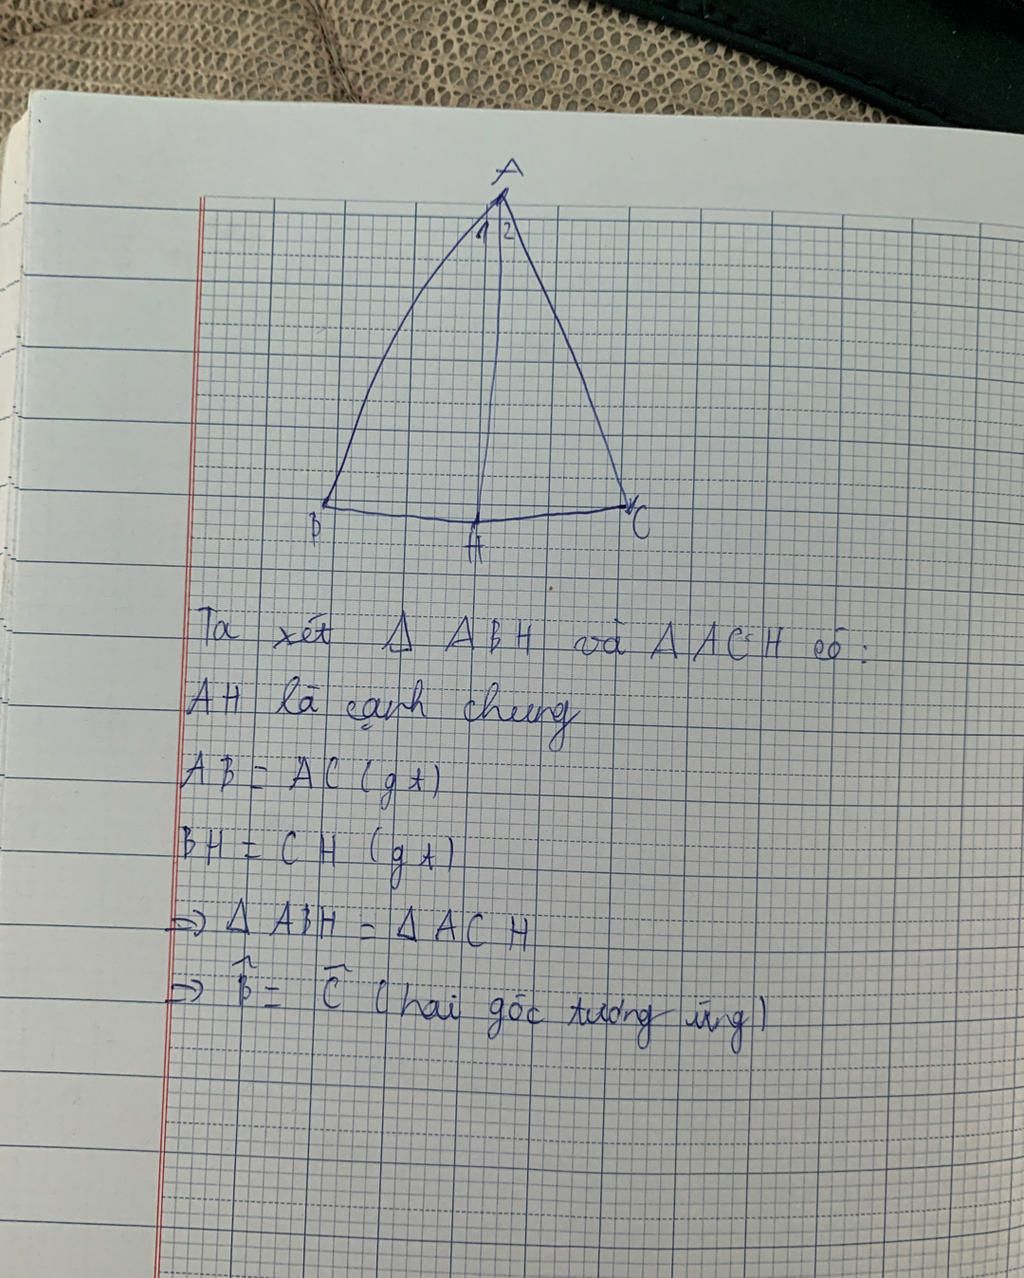 A
1 2
B H C
Ta xét Δ ABH và Δ ACH có:
AH là cạnh chung
AB = AC (gt)
BH = CH (gt)
=> Δ ABH = Δ ACH
=> B̂ = Ĉ (hai góc tương ứng)